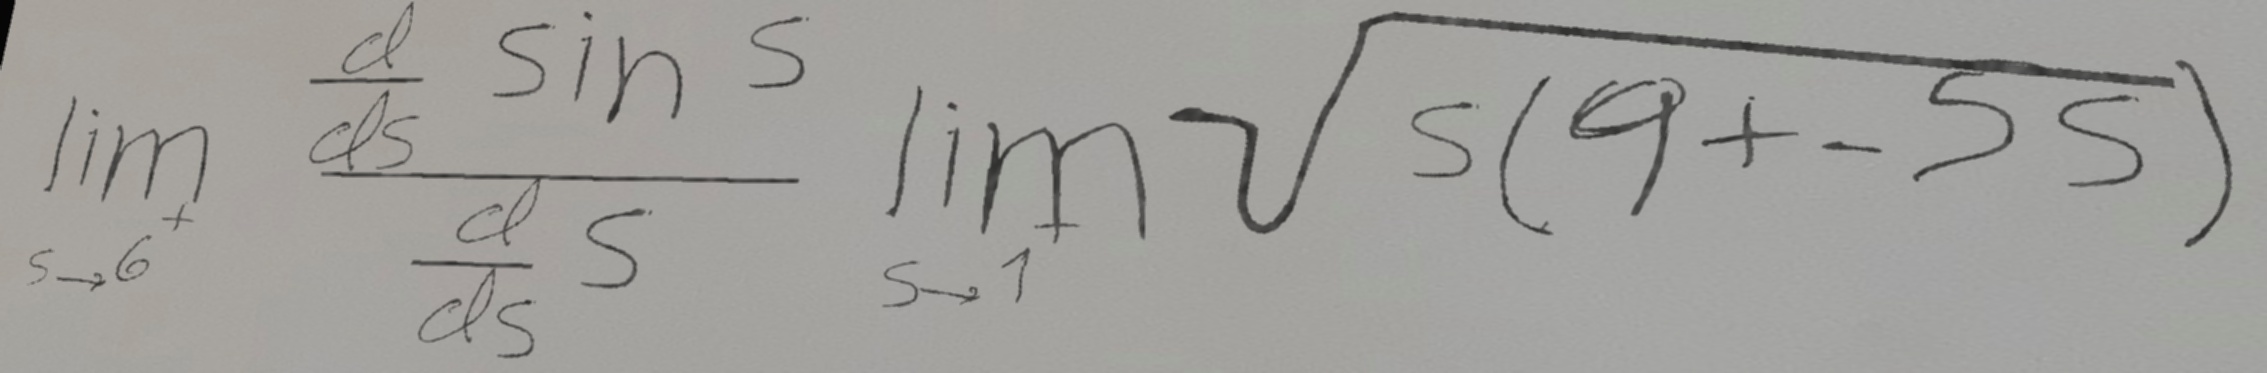 \lim_{s \to 6^+} \frac{\frac{d}{ds} \sin s}{\frac{d}{ds} s} \lim_{s \to 1^+} \sqrt{s(9+-5s)}